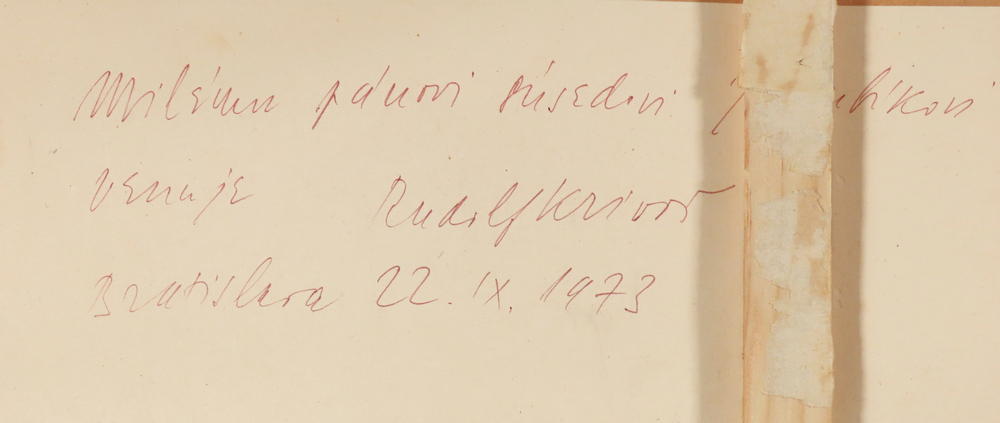 Milému pánovi súsedovi
venuje Rudolf Krivoš
Bratislava 22. IX. 1973